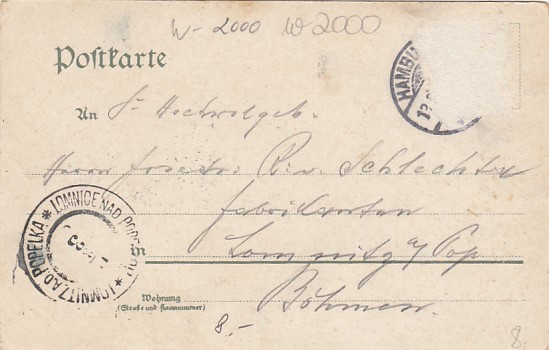 W-2000 W2000
Postkarte
HAMBU
An Sr Hochwolgeb.
Herrn Friedr. R. v. Schlechta
Fabrikanten
LOMNICE NAD POPELKOU * LOMNITZ A.D. POPELKA *
in Lomnitz a/ Pop
Wohnung
(Straße und Hausnummer)
Böhmen.
8.-
8.